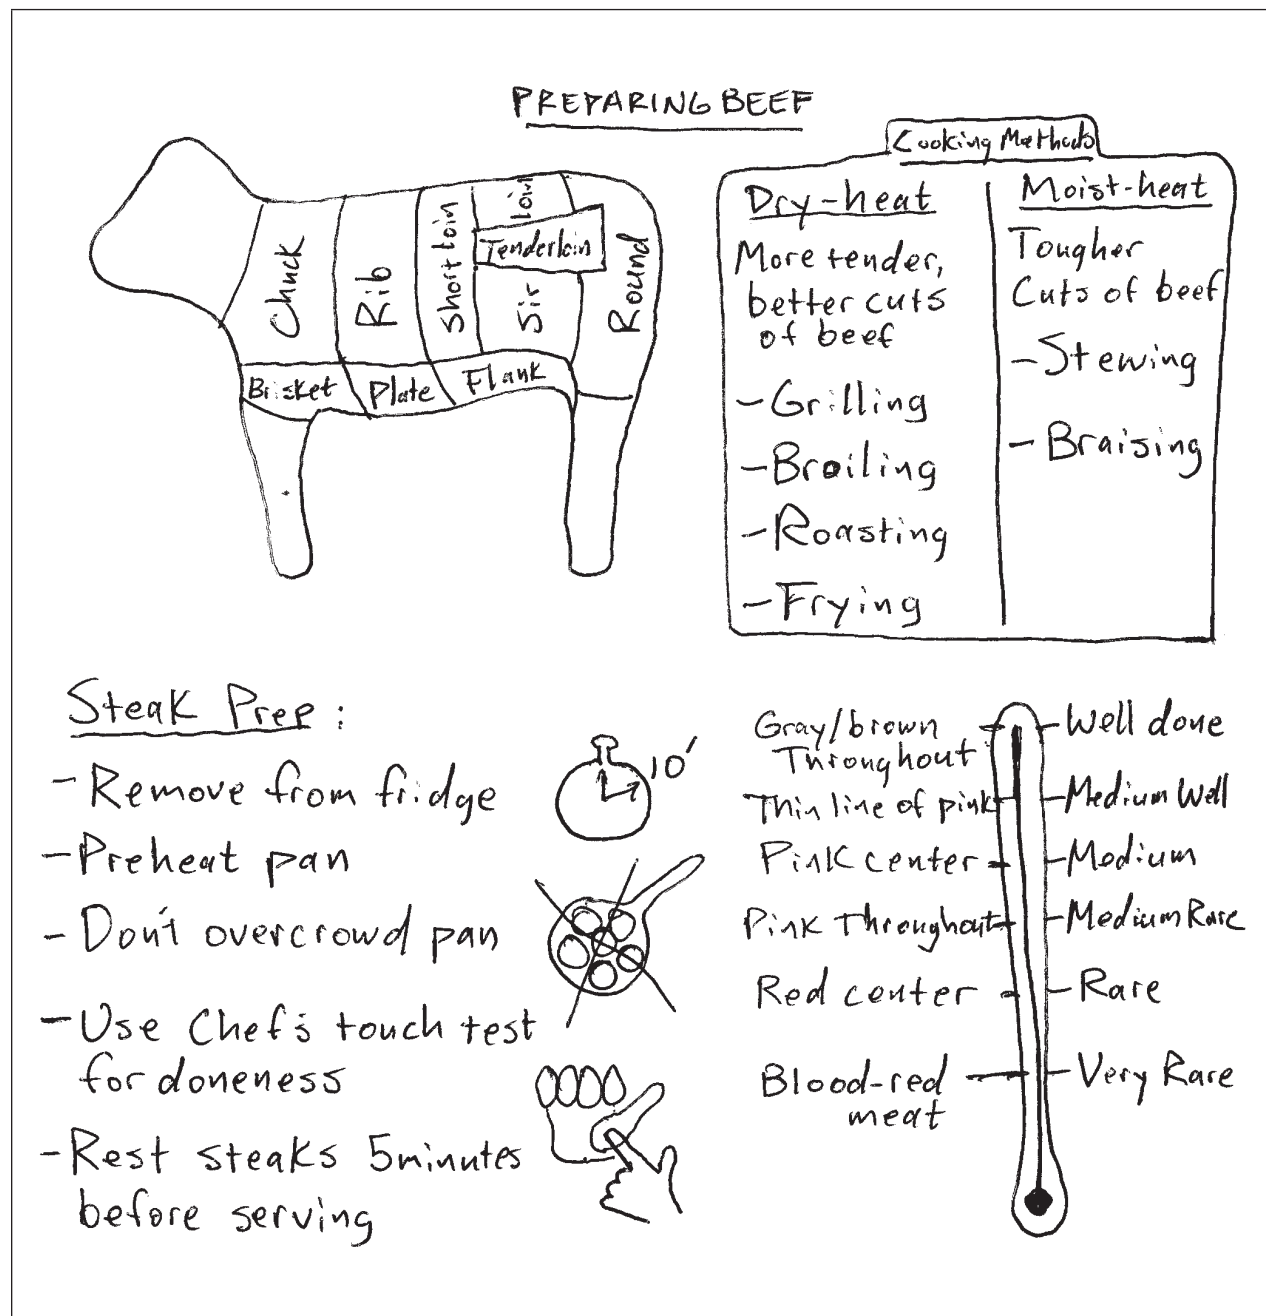 PREPARING BEEF
Chuck
Rib
Short loin
Sirloin
Tenderloin
Round
Brisket
Plate
Flank
Cooking Methods
Dry-heat
More tender,
better cuts
of beef
-Grilling
-Broiling
-Roasting
-Frying
Moist-heat
Tougher
Cuts of beef
-Stewing
-Braising
Steak Prep:
-Remove from fridge
10'
-Preheat pan
-Don't overcrowd pan
-Use Chef's touch test
for doneness
-Rest steaks 5 minutes
before serving
Gray/brown
Throughout
Well done
Thin line of pink
Medium Well
Pink center
Medium
Pink Throughout
Medium Rare
Red center
Rare
Blood-red
meat
Very Rare